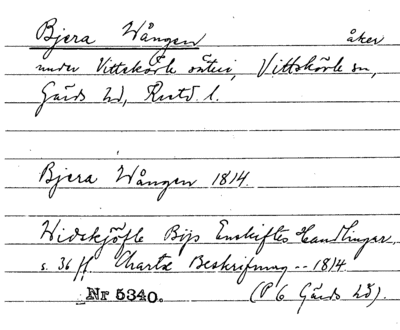 Bjera Wången åker
under Vittskövle säteri, Vittskövle sn,
Gärds hd, Kristd. l.
Bjera Wången 1814.
Widskjöfle Bys Enskiftes Handlingar
s. 36 ff Charta Beskrifning -- 1814
Nr 5340. (P 6 Gärds hd).